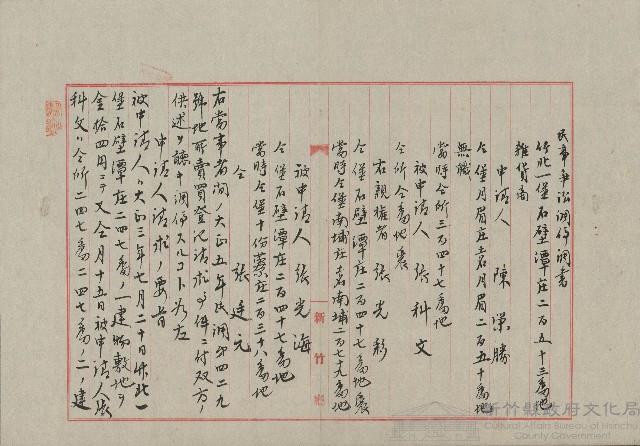 民事爭訟調停調書
竹北一堡石壁潭庄二百五十三番地
雜貨商
申請人 陳榮勝
仝堡月眉庄土名月眉二百五十番地
無職
當時仝所三百四十七番地
被申請人 張科文
仝所仝番地 農
右親權者 張光彩
仝堡石壁潭庄二百四十七番地 農
當時仝堡南埔庄土名南埔二百七十九番地
被申請人 張光海
仝堡石壁潭庄二百四十七番地
當時仝堡十份藔庄二百三十八番地
仝 張廷元
右當事者間ノ大正五年民調第四二九
號地所賣買登記請求ノ件ニ付双方ノ
供述ヲ聽キ調停スルコト如左
申請人請求ノ要旨
被申請人ハ大正三年七月二十日竹北一
堡石壁潭庄二四七番ノ一建物敷地ヲ
金拾四円ニテ又仝月十五日被申請人張
科文ハ仝所二四七番二四七番ノ二ノ建
新竹
新竹縣政府文化局
Cultural Affairs Bureau of Hsinchu County Government